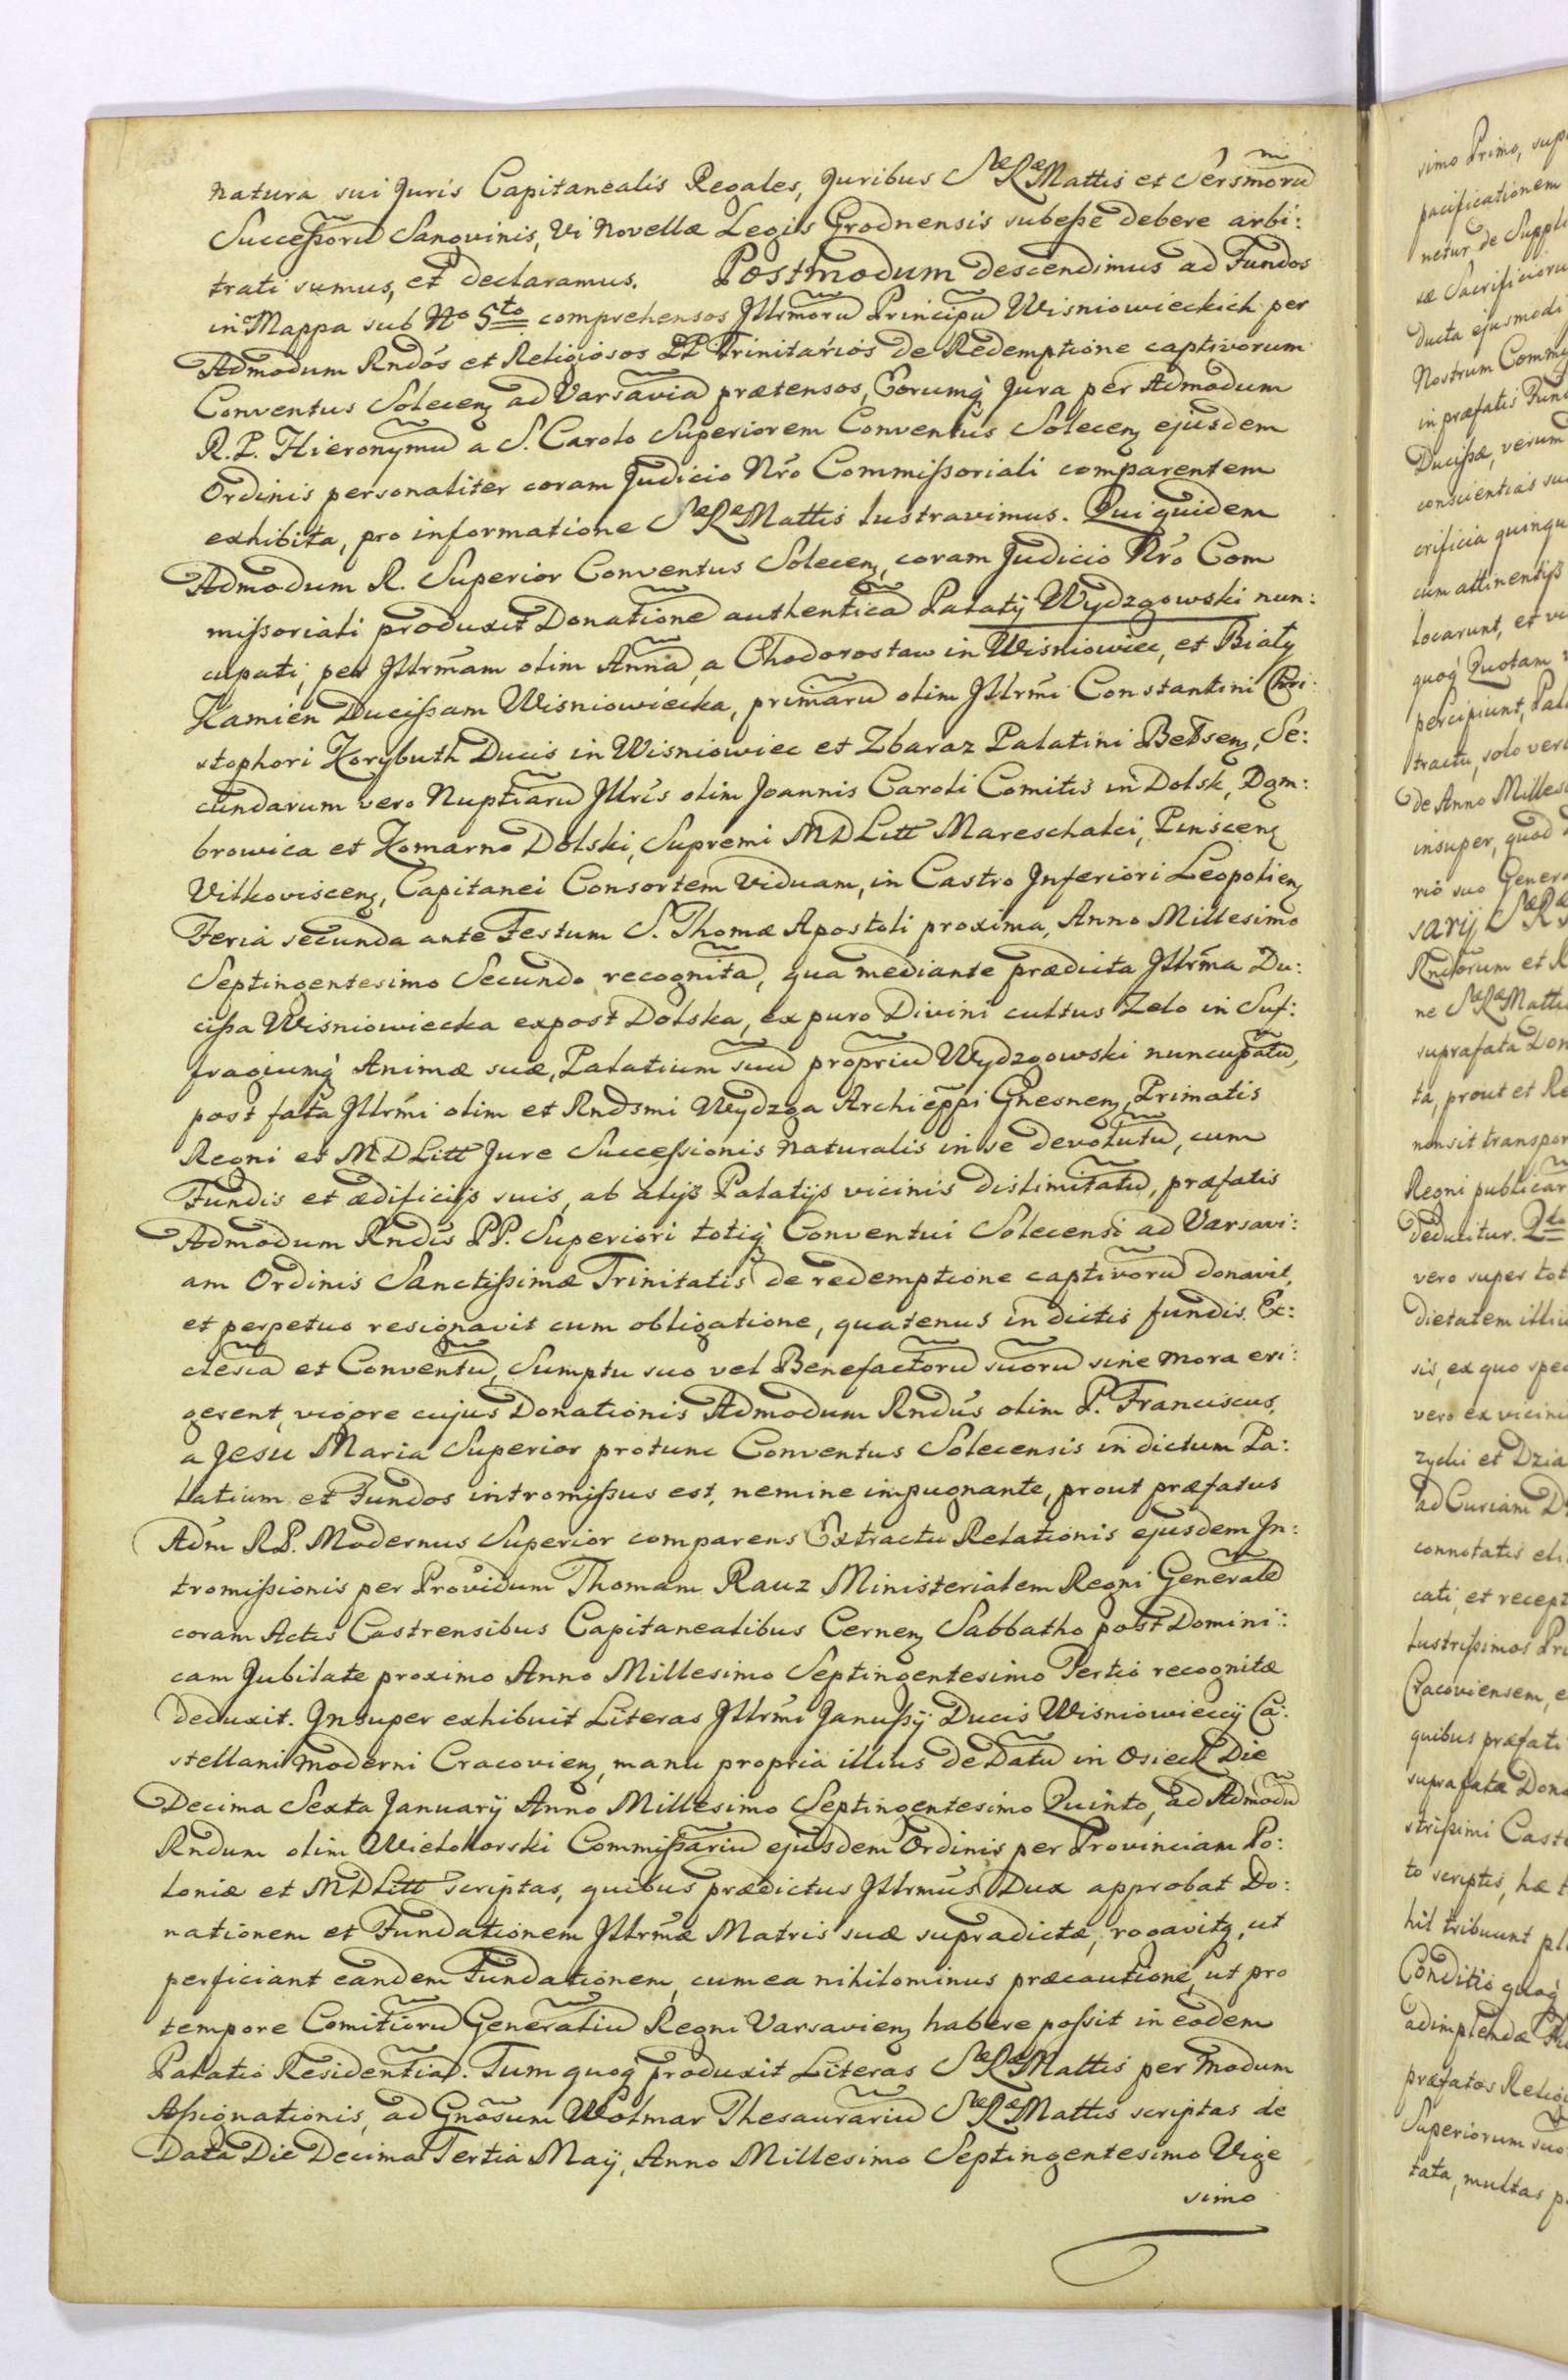 natura sui Juris Capitanealis Regales, Juribus SæRæMattis et Sersmorũ
Successorũ Sangvinis, Vi Novellæ Legis Grodnensis subesse debere arbi:
trati sumus, et declaramus. Postmodum descendimus ad Fundos
in Mappa sub No 5to comprehensos Jllrmorũ Principũ Wisniowieckich per
Admodum Rndos et Religiosos PP Trinitarios de Redemptione captivorum
Conventus Solecen ad Varsaviã prætensos, Eorumq Jura per Admodum
R. P. Hieronymũ a S. Carolo Superiorem Conventus Solecen ejusdem
Ordinis personaliter coram Judicio Nro Commissoriali comparentem
exhibita, pro informatione SæRæMattis lustravimus. Qui quidem
Admodum R. Superior Conventus Solecen, coram Judicio Nro Com
missoriali produxit Donationẽ authenticã Palatÿ Wydzgowski nun:
cupati, per Jllrmam olim Annã a Chodorostaw in Wisniowiec, et Biały
Kamien Ducissam Wisniowiecka, primarũ olim Jllrmi Constantini Chri:
stophori Korybuth Ducis in Wisniowiec et Zbaraz Palatini Betsen, Se:
cundarum vero Nuptiarũ Jllris olim Joannis Caroli Comitis in Dolsk, Dgm:
browica et Komarno Dolski, Supremi MDLitt Mareschalci, Pinscen
Vilkoviscen, Capitanei Consortem Viduam, in Castro Inferiori Leopolien
Feria secunda ante Festum S. Thomæ Apostoli proxima, Anno Millesimo
Septingentesimo Secundo recognitã, qua mediante prædicta Jllrma Du:
cissa Wisniowiecka expost Dolska, ex puro Divini cultus Zelo in Suf:
fragiumq Animæ suæ, Palatium suũ propriũ Wydzgowski nuncupatũ,
post fata Jllrmi olim et Rndsmi Wydzga Archieppi Gnesnen, Primatis
Regni et MDLitt Jure Successionis naturalis in se devolutũ, cum
Fundis et ædificiis suis, ab alijs Palatijs vicinis dislimitatũ, præfatis
Admodum Rndis PP. Superiori totiq Conventui Solecensi ad Varsavi:
am Ordinis Sanctissimæ Trinitatis de redemptione captivorũ donavit,
et perpetuo resignavit cum obligatione, quatenus in dictis fundis Ec:
clesiã et Conventũ, Sumptu suo vel Benefactorũ suorũ sine mora eri:
gerent, vigore cujus Donationis Admodum Rndus olim P. Franciscus
a Jesu Maria Superior protunc Conventus Solecensis in dictum Pa:
latium et Fundos intromissus est, nemine impugnante, prout præfatus
Adm RP. Modernus Superior comparens Extractu Relationis ejusdem In:
tromissionis per Providum Thomam Rauz Ministerialem Regni Generalẽ
coram Actis Castrensibus Capitanealibus Cernen Sabbatho post Domini:
cam Jubilate proximo Anno Millesimo Septingentesimo Tertio recognitæ
deduxit. Insuper exhibuit Literas Jllrmi Janussÿ Ducis Wisniowiecÿ Ca:
stellani moderni Cracovien, manu propria illius de Datũ in Osieck Die
Decima Sexta Januarÿ Anno Millesimo Septingentesimo Quinto, ad Admodũ
Rndum olim Wielohorski Commissariũ ejusdem Ordinis per Provinciam Po:
loniæ et MDLitt scriptas, quibus prædictus Jllrmus Dux approbat Do:
nationem et Fundationem Jllrmæ Matris suæ supradictæ, rogavitq, ut
perficiant eandem Fundationem, cum ea nihilominus præcautione, ut pro
tempore Comitiorũ Generaliũ Regni Varsavien habere possit in eodem
Palatio Residentiã. Tum quoq produxit Literas SæRæMattis per modum
Assignationis, ad Gnosum Wolmar Thesaurariũ SæRæMattis scriptas de
Data Die Decima Tertia Maÿ, Anno Millesimo Septingentesimo Vige
simo
simo Primo,
pacificationem
netur de
ducta ejusmodi
Nostrum
in præfatis
Ducissæ, verum
conscientias
crificia
locarunt, et
quoq Quotam
percipiunt,
tractu, solo
de Anno
insuper, quod
rio suo
sarÿ SæRæ
Rndorum et
ne SæRæMattis
suprafata
ta, prout et
non sit
Regni
deducitur.
vero super
dietatem
sis, ex quo
vero ex
zycki et
ad Curiam
connotatis
cati, et
lustrissimos
Cracoviensem,
quibus præfati
suprafatæ
strissimi
to scriptis, hæ
hil tribuunt
Conditio quoq
adimplendæ
præfatos
Superiorum
tata, multas